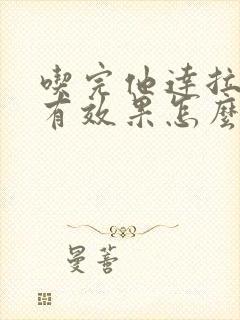 喫完他達拉
有效果怎麼
曼薈